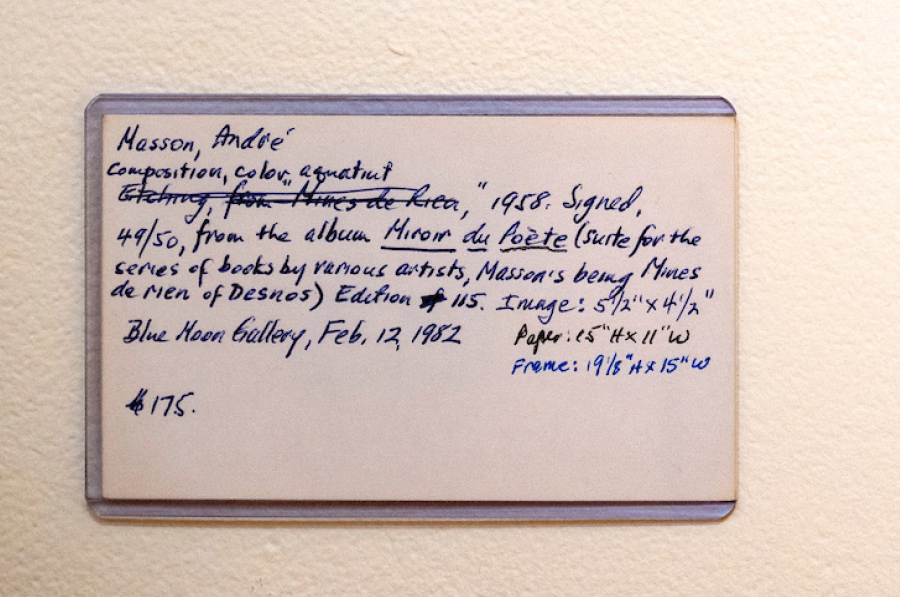 Masson, André
Composition, color aquatint
Etching, from "Mines de Rien," 1958. Signed,
49/50, from the album Miroir du Poète (suite for the
series of books by various artists, Masson's being Mines
de rien of Desnos) Edition of 115. Image: 5 1/2" x 4 1/2"
Blue Moon Gallery, Feb. 12, 1982
Paper: 15" H x 11" W
Frame: 19 1/8" H x 15" W
$175.